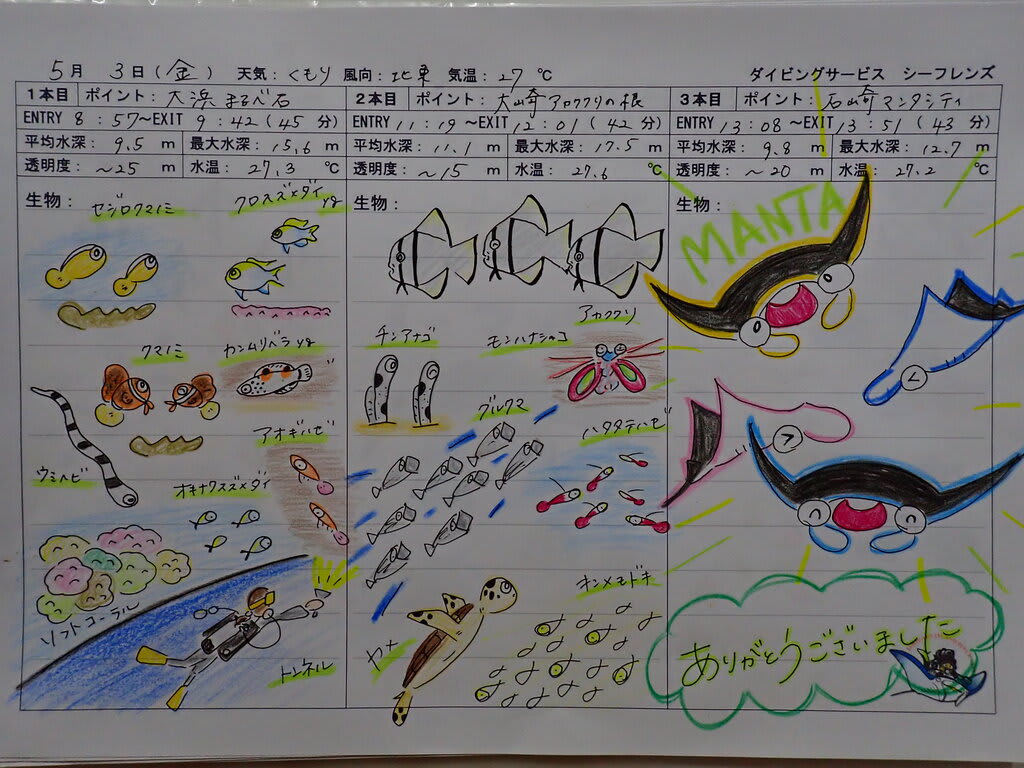 5月 3日(金) 天気:くもり 風向:北東 気温:27℃
ダイビングサービス シーフレンズ
1本目 ポイント:大浜まるべ石
ENTRY 8:57～EXIT 9:42(45分)
平均水深:9.5m 最大水深:15.6m
透明度:～25m 水温:27.3℃
生物:
セジロクマノミ
クロスズメダイyg
クマノミ
カンムリベラyg
アオギハゼ
ウミヘビ
オキナワスズメダイ
ソフトコーラル
トンネル
2本目 ポイント:大崎アカククリの根
ENTRY 11:19～EXIT 12:01(42分)
平均水深:11.1m 最大水深:17.5m
透明度:～15m 水温:27.6℃
生物:
アカククリ
チンアナゴ
モンハナシャコ
グルクマ
ハタタテハゼ
キンメモドキ
カメ
3本目 ポイント:石崎マンタシティ
ENTRY 13:08～EXIT 13:51(43分)
平均水深:9.8m 最大水深:12.7m
透明度:～20m 水温:27.2℃
生物:
MANTA
ありがとうございました